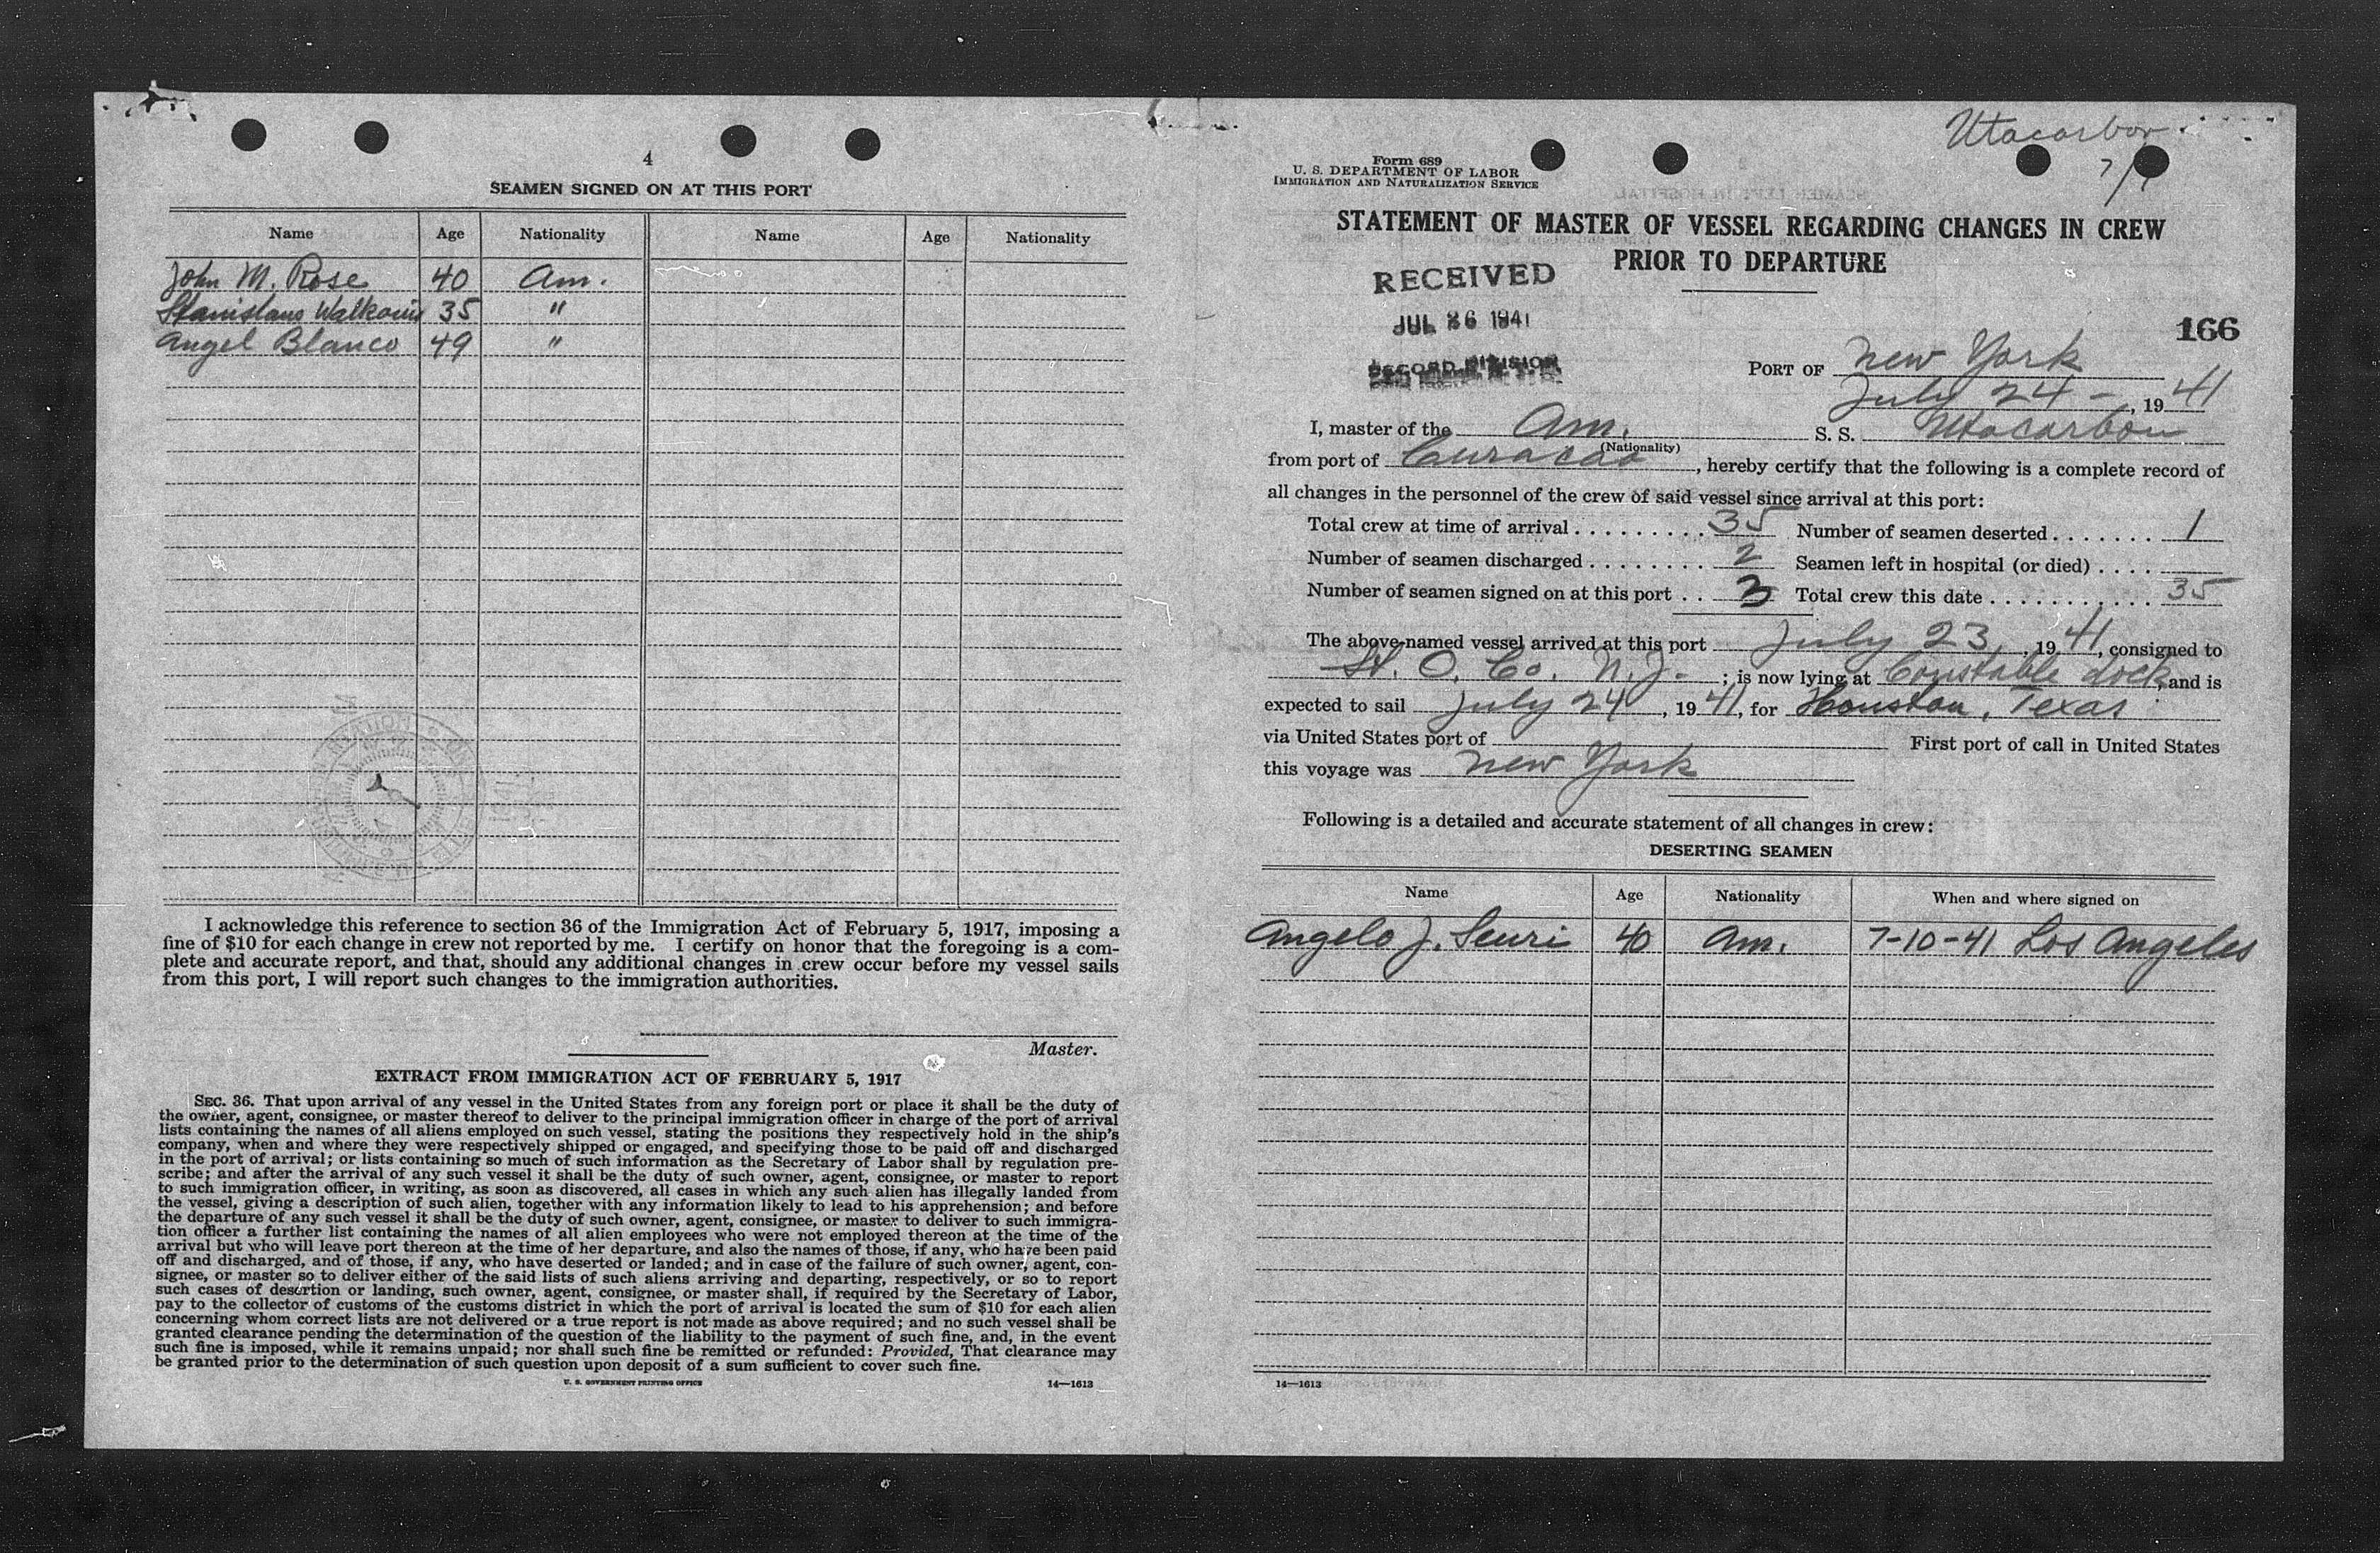 4
SEAMEN SIGNED ON AT THIS PORT
Name Age Nationality Name Age Nationality
John M. Rose 40 Am.
Stanislaus 35 "
Angel Blanco 49 "
I acknowledge this reference to section 36 of the Immigration Act of February 5, 1917, imposing a
fine of $10 for each change in crew not reported by me. I certify on honor that the foregoing is a com-
plete and accurate report, and that, should any additional changes in crew occur before my vessel sails
from this port, I will report such changes to the immigration authorities.
Master.
EXTRACT FROM IMMIGRATION ACT OF FEBRUARY 5, 1917
SEC. 36. That upon arrival of any vessel in the United States from any foreign port or place it shall be the duty of
the owner, agent, consignee, or master thereof to deliver to the principal immigration officer in charge of the port of arrival
lists containing the names of all aliens employed on such vessel, stating the positions they respectively hold in the ship's
company, when and where they were respectively shipped or engaged, and specifying those to be paid off and discharged
in the port of arrival; or lists containing so much of such information as the Secretary of Labor shall by regulation pre-
scribe; and after the arrival of any such vessel it shall be the duty of such owner, agent, consignee, or master to report
to such immigration officer, in writing, as soon as discovered, all cases in which any such alien has illegally landed from
the vessel, giving a description of such alien, together with any information likely to lead to his apprehension; and before
the departure of any such vessel it shall be the duty of such owner, agent, consignee, or master to deliver to such immigra-
tion officer a further list containing the names of all alien employees who were not employed thereon at the time of the
arrival but who will leave port thereon at the time of her departure, and also the names of those, if any, who have been paid
off and discharged, and of those, if any, who have deserted or landed; and in case of the failure of such owner, agent, con-
signee, or master so to deliver either of the said lists of such aliens arriving and departing, respectively, or so to report
such cases of desertion or landing, such owner, agent, consignee, or master shall, if required by the Secretary of Labor,
pay to the collector of customs of the customs district in which the port of arrival is located the sum of $10 for each alien
concerning whom correct lists are not delivered or a true report is not made as above required; and no such vessel shall be
granted clearance pending the determination of the question of the liability to the payment of such fine, and, in the event
such fine is imposed, while it remains unpaid; nor shall such fine be remitted or refunded: Provided, That clearance may
be granted prior to the determination of such question upon deposit of a sum sufficient to cover such fine.
U. S. GOVERNMENT PRINTING OFFICE 14—1613
Utacarbon
Form 689
U. S. DEPARTMENT OF LABOR
IMMIGRATION AND NATURALIZATION SERVICE
STATEMENT OF MASTER OF VESSEL REGARDING CHANGES IN CREW
PRIOR TO DEPARTURE
RECEIVED
JUL 26 1941
RECORD DIVISION
166
PORT OF New York
July 24 - , 19 41
I, master of the Am. S. S. Utacarbon
(Nationality)
from port of Curacao , hereby certify that the following is a complete record of
all changes in the personnel of the crew of said vessel since arrival at this port:
Total crew at time of arrival 35 Number of seamen deserted 1
Number of seamen discharged 2 Seamen left in hospital (or died)
Number of seamen signed on at this port 3 Total crew this date 35
The above-named vessel arrived at this port July 23 , 19 41, consigned to
St. O. Co. N.J. ; is now lying at Constable dock, and is
expected to sail July 24 , 19 41, for Houston, Texas
via United States port of First port of call in United States
this voyage was New York
Following is a detailed and accurate statement of all changes in crew:
DESERTING SEAMEN
Name Age Nationality When and where signed on
Angelo J. Scuri 40 Am. 7-10-41 Los Angeles
14—1613